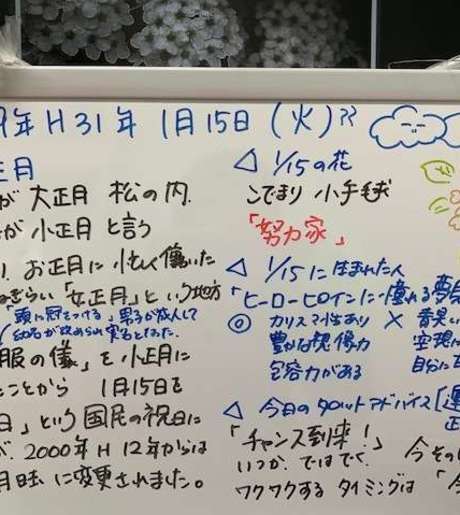 9年 H 31年 1月15日 (火)
正月
が 大正月 松の内.
が 小正月 と言う
お正月に 忙しく働いた
ねぎらい 「女正月」という地方
「頭に冠をつける」男子が成人して
幼名が改められ実名となった
服の儀」を小正月に
ことから 1月15日を
日」という国民の祝日に
が、2000年 H 12年からは
月曜日に変更されました。
△ 1/15の花
こでまり 小手毬
「努力家」
△ 1/15に生まれた人
「ヒーローヒロインに憧れる夢見
◎ カリスマ性あり
豊かな想像力
包容力がある
×
空想に
自分に
△ 今日のタロットアドバイス「運
「チャンス到来!」
いつか ではなく、今その
ワクワクする タイミングは 「今